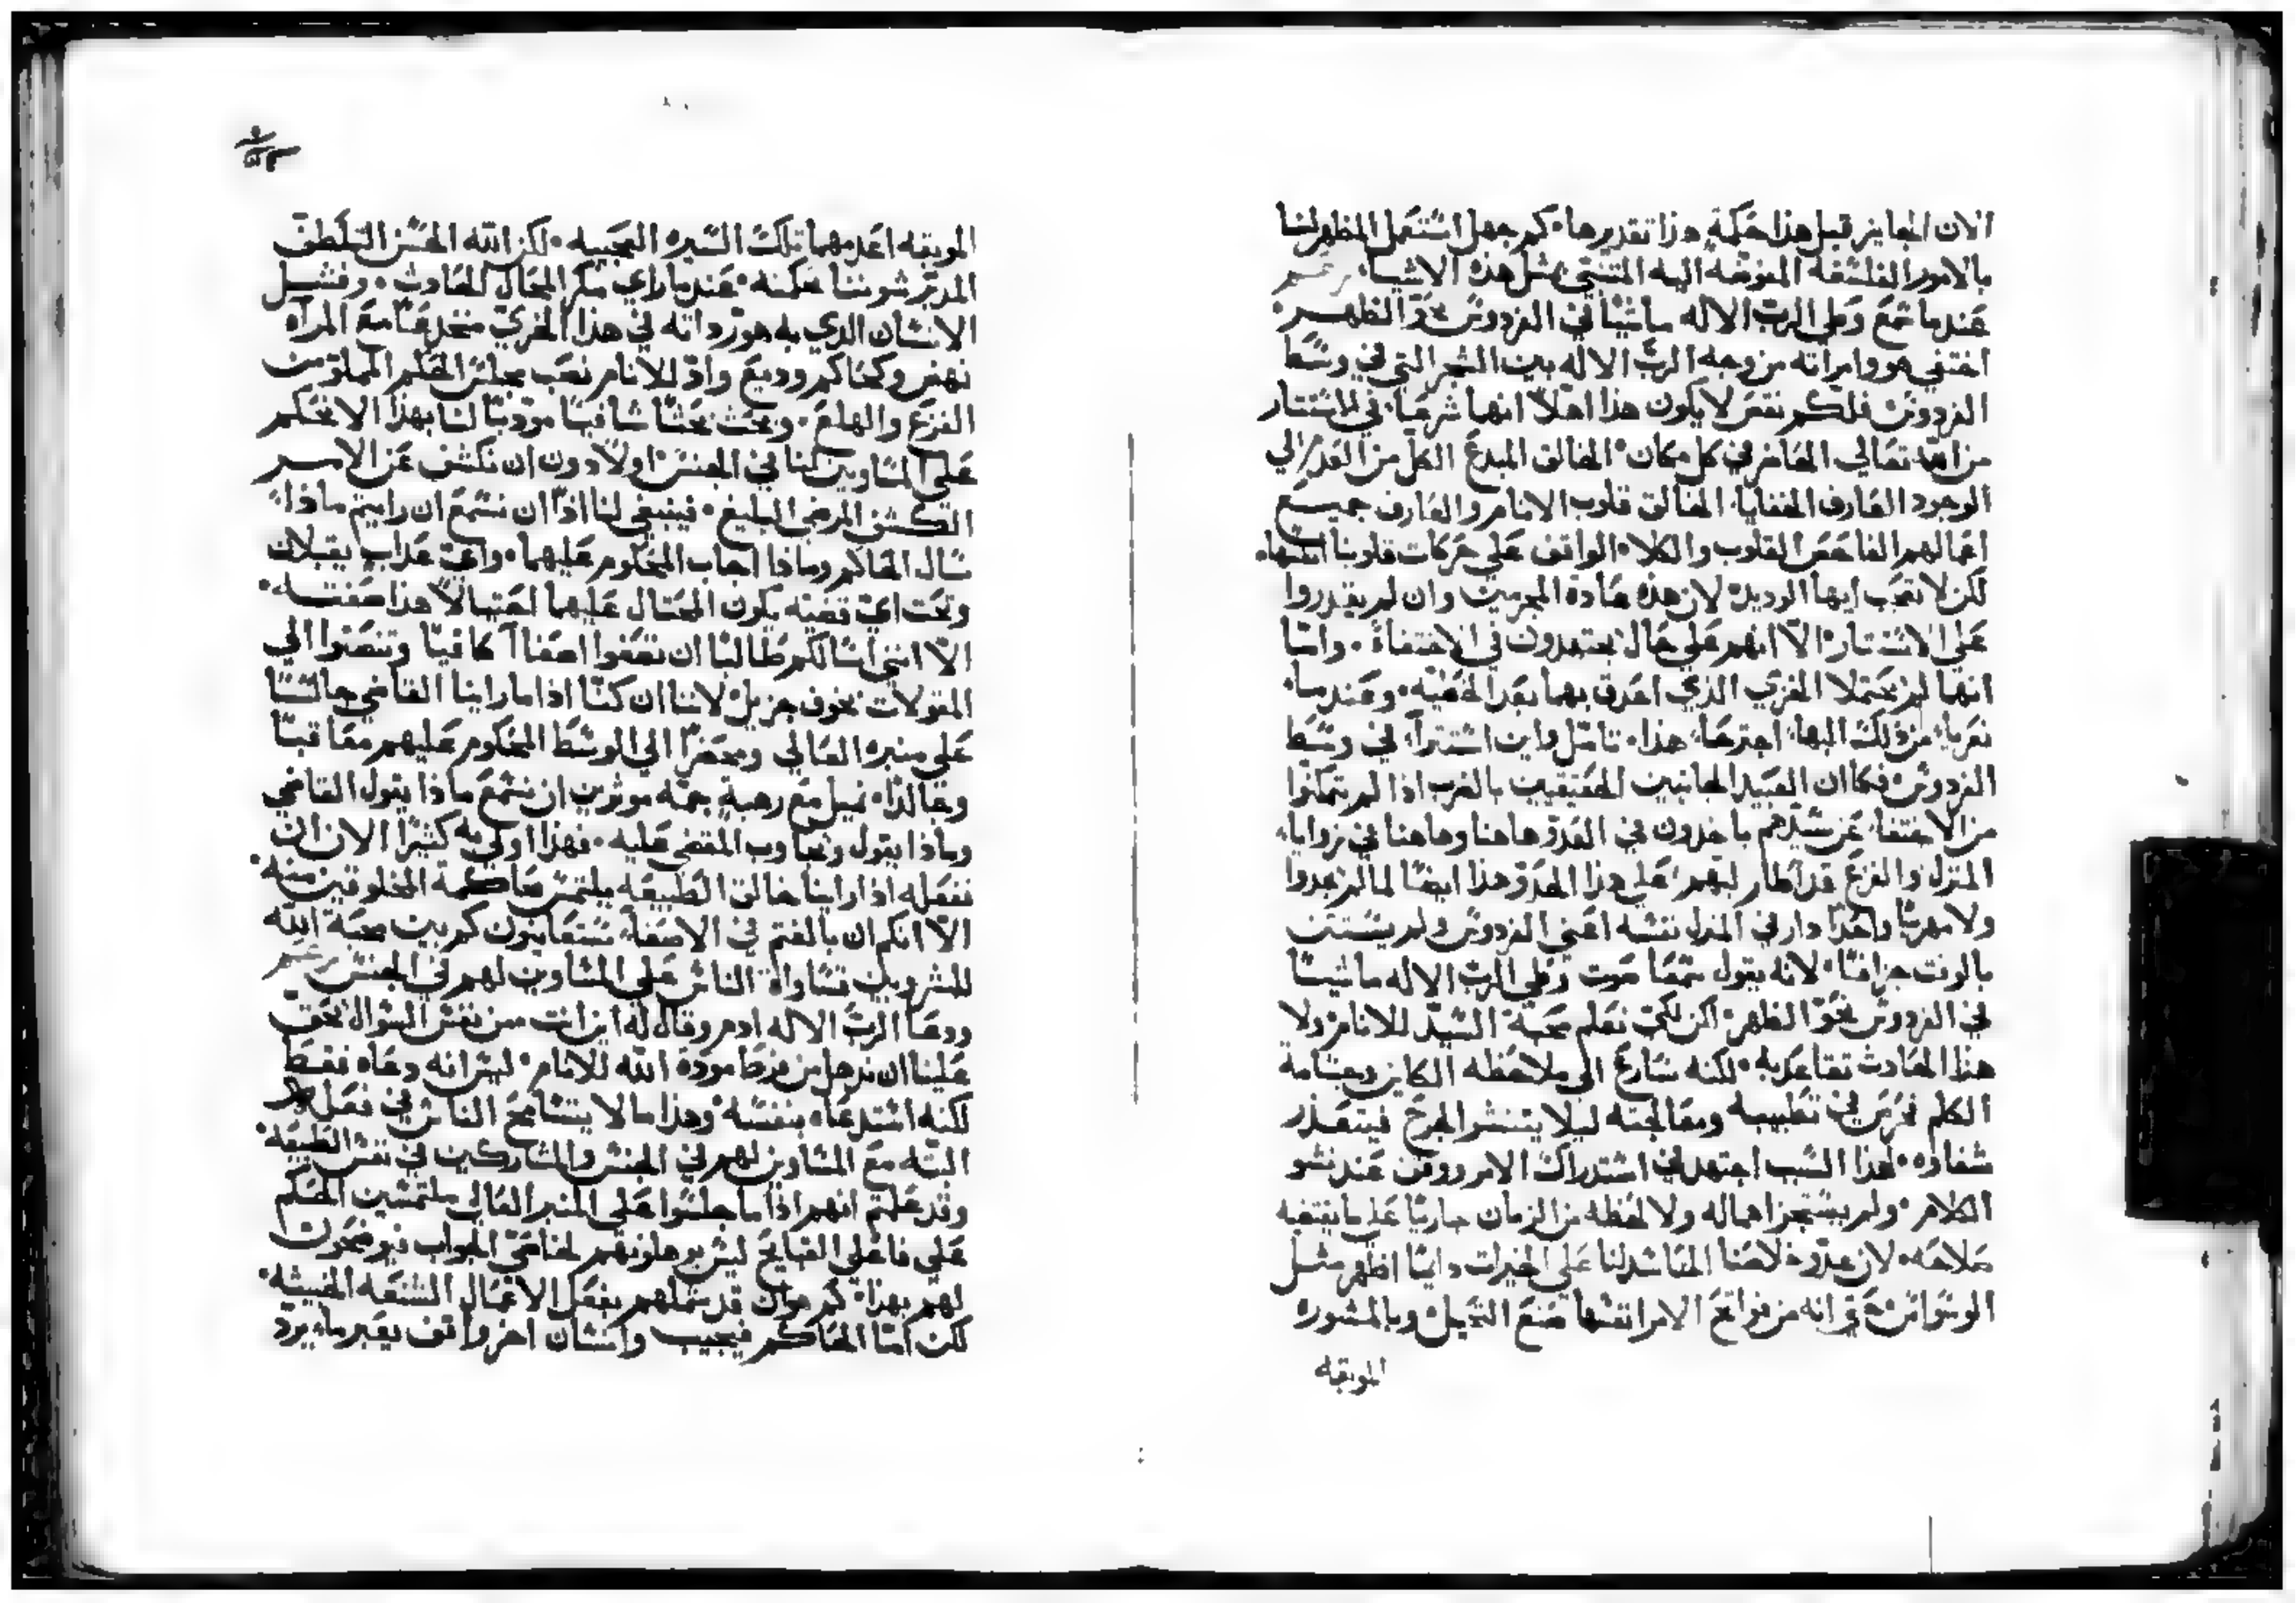 الان الجايز قبل هذا حكمةٍ هذا تقديرها، كم جهل استعمل المظهر لنا
بالامور الفلسفة المفوضه اليه المتنبي بمثل هذه الاشيا،
عندما سمع وطي الرب الاله ماشيًا في الفردوس نحو الظهر،
اختفي هو وامراته من وجه الرب الاله بين الشجر التي في وسط
الفردوس فلكم نقص لا يكون هذا اهلاً انها شرعا، في الاستتار
من الله تعالي الحاضر في كل مكان، الخالق المبدع الكل من العدم الي
الوجود العارف الخفايا، الخالق قلوب الانام والعارف جميع
اعمالهم الفاحص القلوب والكلا، الواقف علي حركات قلوبنا
لكن لا تعجب ايها الوديد، لان هذه عادة المجرمين وان لم يقدروا
علي الاستتار، الّا انهم علي حال يجتهدون في الاختفاء، واما
انهما لم يحتملا الخزي الذي احدق بهما بعد الخطيه، وعندما
تعريا، من ذلك البها، اجترعا، هذا، تامل واين استترا، في وسط
الفردوس فكما ان العبيد الجانيين الحقيقيين بالضرب اذا لم يتمكنوا
من الاختفا، عن سيدهم ياخذون في العدو هاهنا وهاهنا في زوايا،
المنزل والفزع قد اطار لبهم، علي هذا الحذو هذا ايضًا لما لم يجدوا
ولا مهربًا واحدًا دار في المنزل نفسه اعني الفردوس ولم يستتر
بالوقت جزافًا، لانه يقول سمعا صوت وطي الرب الاله ماشيًا
في الفردوس نحو الظهر، لكن لكي نعلم محبة السيد للانام، ولا
هذا الحادث تقاعد به، لكنه سارع الي ملاحظه الكاين وجسامة
الكلم فرض في تطبيبه ومعالجته ليلا يتنشر الجرح فيتعذر
شفاوه، لهذا السبب اجتهد في استدراك الامر ووقف عند نشو
الكلام، ولم يستجز اهماله ولا لحظه من الزمان جاريًا علي ما يقتضيه
صلاحه، لان عدو خلاصنا الحاسد لنا علي الخيرات دايمًا اظهر مثل
الوسواس حتي انه من فواتح الامر انفسها صنع التحيل وبالمشوره
الموبقه
الموبقه اعدمهما تلك السيره العجيبه، لكن الله المحسن التلطف
المدبر شووننا بحكمته، عندما راي مكر المحال الحادث، وفشل
الانسان الذي به هوّر ذاته في هذا الخزي منخدعًا مع المراه
نهض وكحاكم وديع وادّ للانام نصب مجلس الحكم المملو من
الفزع والهلع، وبحث بحثًا شافيًا مودبًا لنا بهذا الا نحكم
علي المساوين لنا في الجنس، اولا دون ان نكشف عن الامر
الكشف المرضي البليغ، فينبغي لنا اذًا ان نسمع ان رايتم ماذا،
سال الحاكم وماذا اجاب المحكوم عليهما، واي عذابٍ يقبلان
وتحت اي قضيه يكون المحتال عليهما احتيالاً هذا صفته،
الّا انني اسالكم طالبًا ان تصغوا اصغاآ كافيًا وتنصتوا الي
المقولات بخوف جزيل، لاننا ان كنّا اذا ما راينا القاضي جالسًا
علي منبره العالي ومحضرًا الي الوسط المحكوم عليهم معاقبًا
وجالدًا، نميل مع رهبةٍ جمّه موثرين ان نسمع ماذا يقول القاضي
وماذا يقول ويجاوب المقضي عليه، فهذا اولي به كثيرًا الان ان
نفعله اذا راينا خالق الطبيعه يلتمس محاكمة المخلوقين منه،
الّا انكم ان بالغتم في الاصغاء تستعاينون كم بين محبة الله
للبشر وبين قساوة الناس علي المساوين لهم في الجنس
ودعا الرب الاله ادم وقال له اين انت من نفس السوال يحق
علينا ان نذهل من فرط مودة الله للانام، ليس انه دعاه فقط
لكنه استدعاه بنفسه، وهذا ما لا يتسامح الناس في فعله
البته مع المساوين لهم في الجنس والمشاركين في نفس الطبيعه،
وقد علمتم انهم اذا ما جلسوا علي المنبر العالي ملتمسين الحكم
علي فاعلي القبايح ليس يوهلونهم لخاصيّ الجواب فيوضحون
لهم بهذا، كم هوان قد شملهم بفعل الاعمال الشنعه الخبيثه،
لكن امّا الحاكم فيجيب وانسان اخر واقف يعبر ما يرد